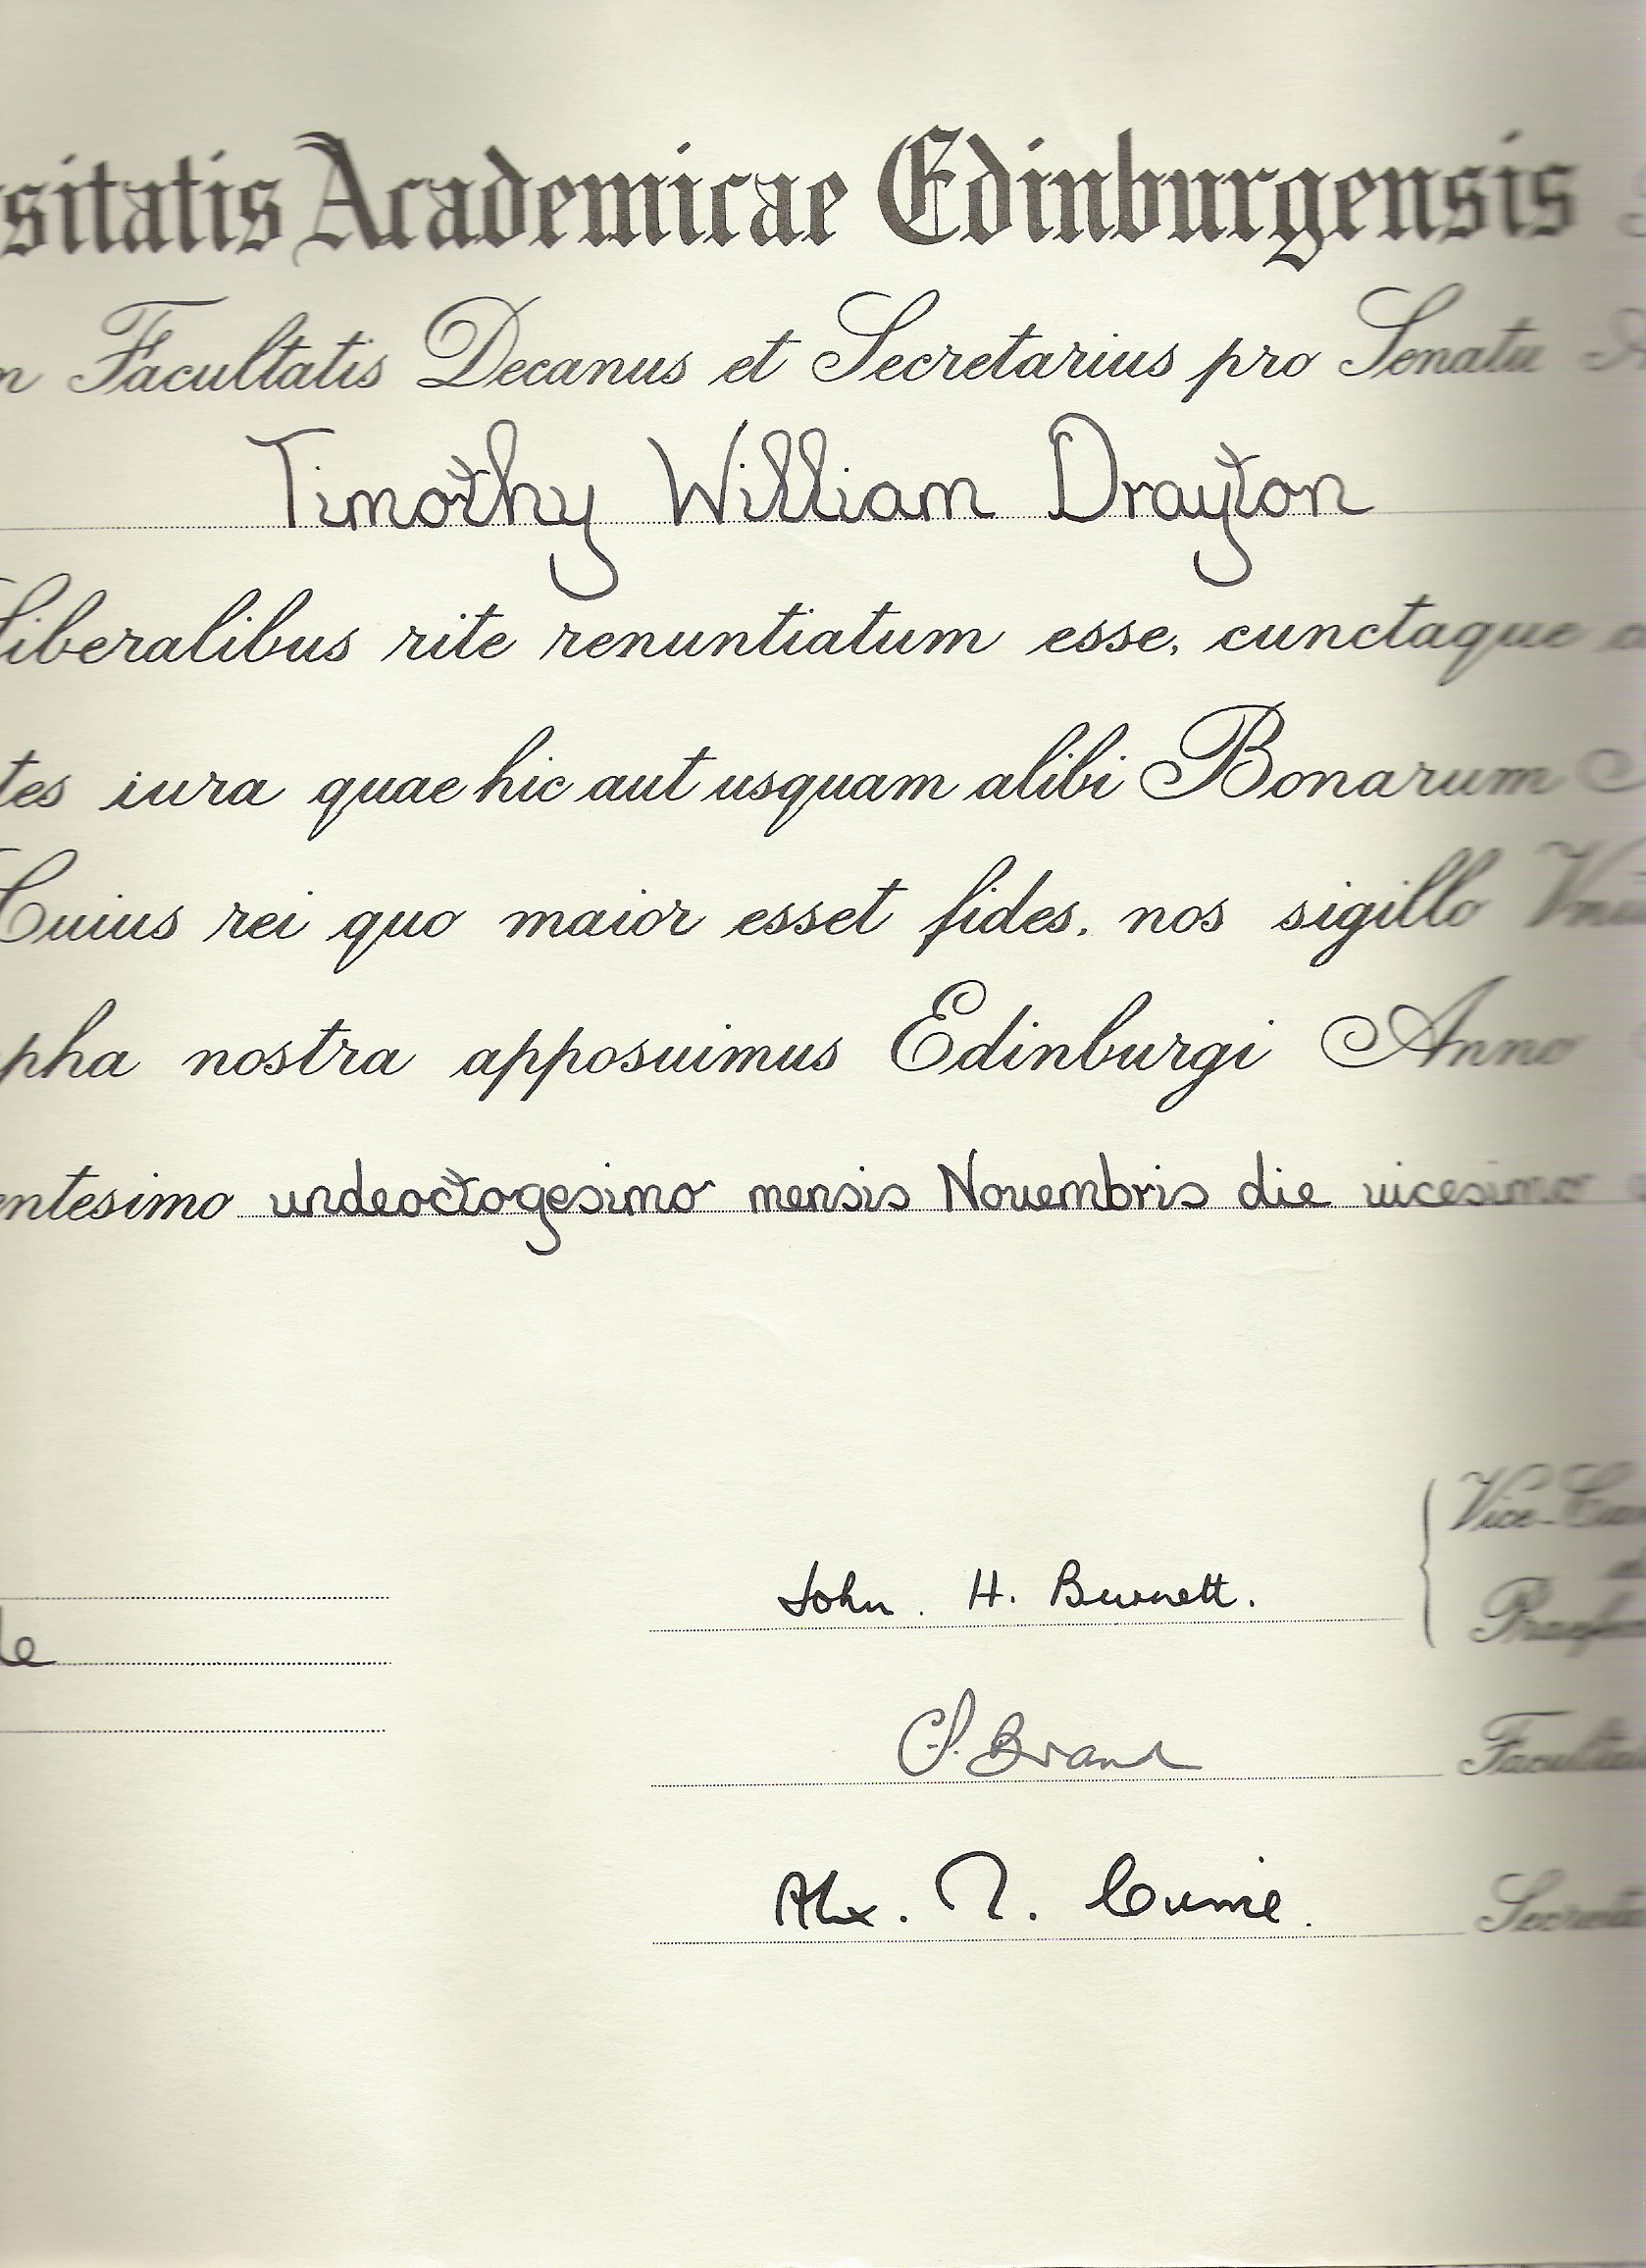 sitatis Academicae Edinburgensis
Facultatis Decanus et Secretarius pro Senatu
Timothy William Drayton
liberalibus rite renuntiatum esse, cunctaque
tes iura quae hic aut usquam alibi Bonarum
Cuius rei quo maior esset fides, nos sigillo
pha nostra apposuimus Edinburgi Anno
entesimo undeoctogesimo mensis Nouembris die uicesimo
Vice-Can
John H. Burnett.
Praefec
C.P. Brand
Facultat
Alex. M. Currie.
Secreta